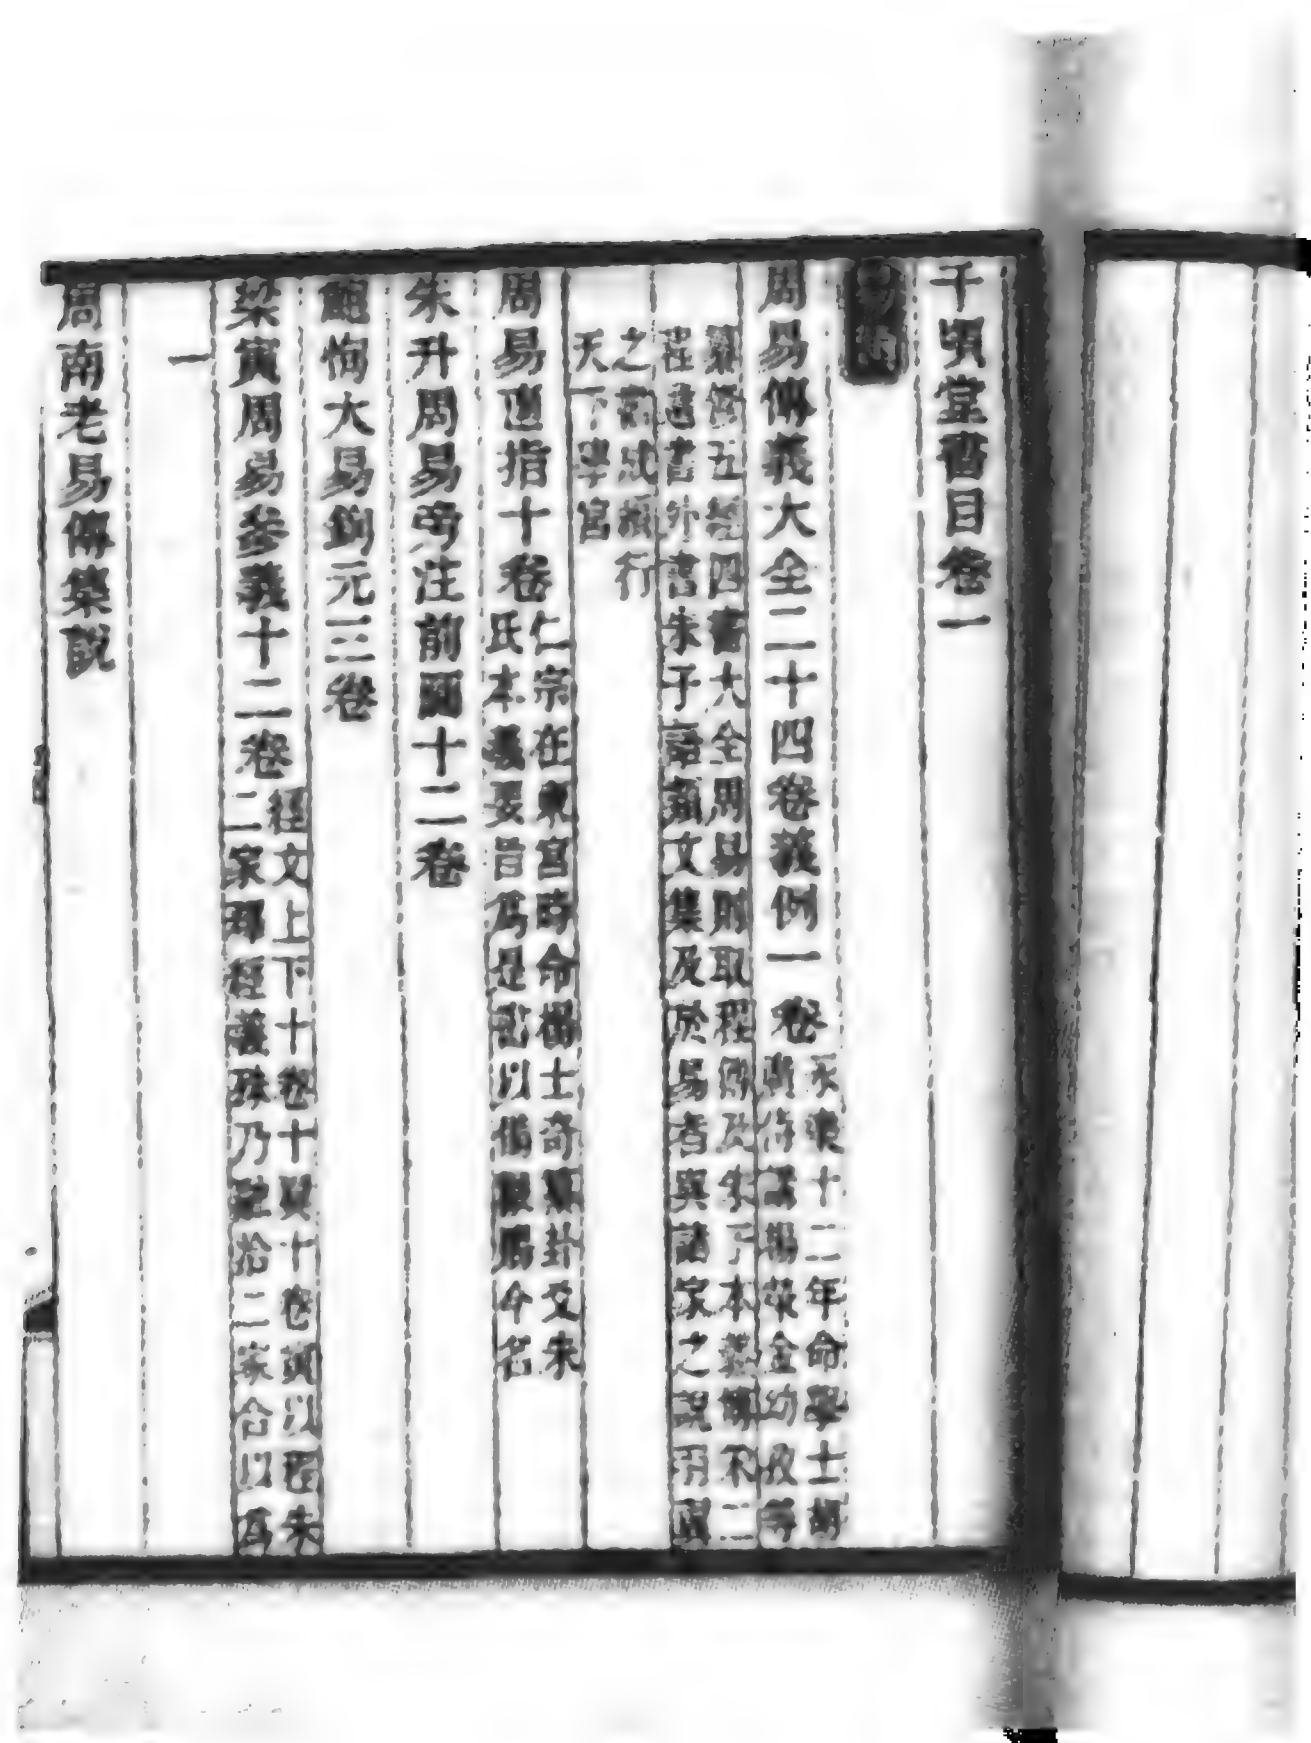 千頃堂書目卷一
易類
周易傳義大全二十四卷義例一卷
永樂十二年命學士胡
廣侍講楊榮金幼孜等
纂脩五經四書大全周易則取程傳及朱子本義 不二
程遺書外書朱子語類文集及於易者與諸家之說
之書成頒行
天下學宮
周易直指十卷
仁宗在東宮時命楊士奇 卦爻朱
氏本義要旨為是 以備 賜今名
朱升周易旁注前圖十二卷
鮑恂大易鉤元三卷
梁寅周易參義十二卷
經文上下十卷十翼十卷寅以程朱
二家 經義殊乃 拾二家合以為
一
周南老易傳集說